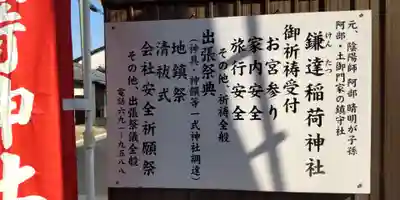 元、陰陽師 阿部 晴明が子孫
阿部・土御門家の鎮守社
鎌達稲荷神社
けん たつ
御祈祷受付
お宮参り
家内安全
旅行安全
その他、祈祷全般
出張祭典
(神具、神饌等一式神社調達)
地鎮祭
清祓式
会社安全祈願祭
その他、出張祭儀全般
電話六九一-九五八八
荷神社